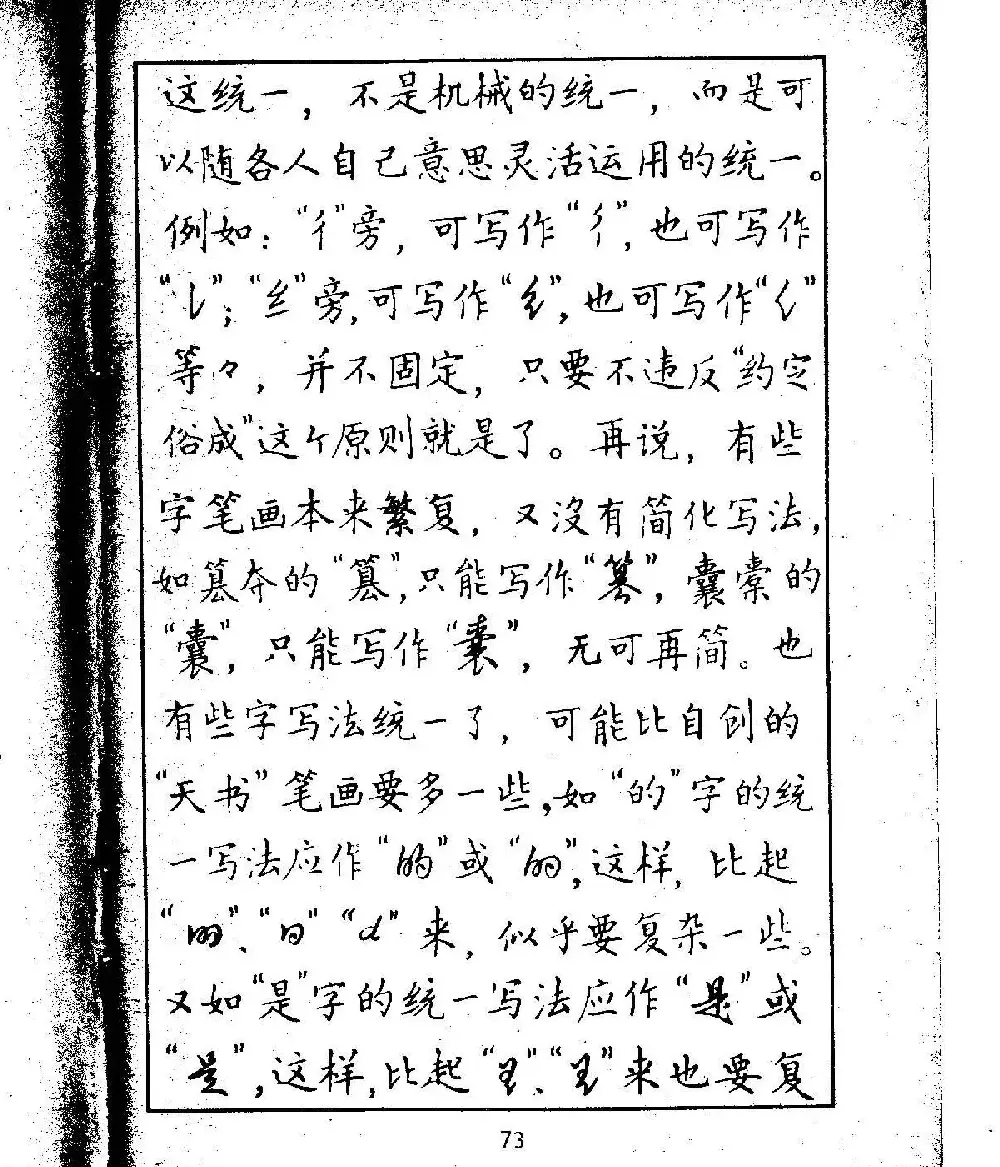 这统一，不是机械的统一，而是可
以随各人自己意思灵活运用的统一。
例如：“彳”旁，可写作“彳”，也可写作
“讠”；“纟”旁，可写作“纟”，也可写作“纟”
等々，并不固定，只要不违反“约定
俗成”这个原则就是了。再说，有些
字笔画本来繁复，又没有简化写法，
如篡夺的“篡”，只能写作“篡”，囊橐的
“囊”，只能写作“囊”，无可再简。也
有些字写法统一了，可能比自创的
“天书”笔画要多一些，如“的”字的统
一写法应作“的”或“的”，这样，比起
“的”、“日”“d”来，似乎要复杂一些。
又如“是”字的统一写法应作“是”或
“是”，这样，比起“”、“”来也要复
73